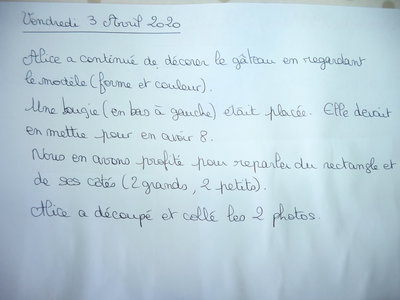 Vendredi 3 Avril 2020
Alice a continué de décorer le gâteau en regardant
le modèle (forme et couleur).
Une bougie (en bas à gauche) était placée. Elle devait
en mettre pour en avoir 8.
Nous en avons profité pour reparler du rectangle et
de ses cotés (2 grands, 2 petits).
Alice a découpé et collé les 2 photos.